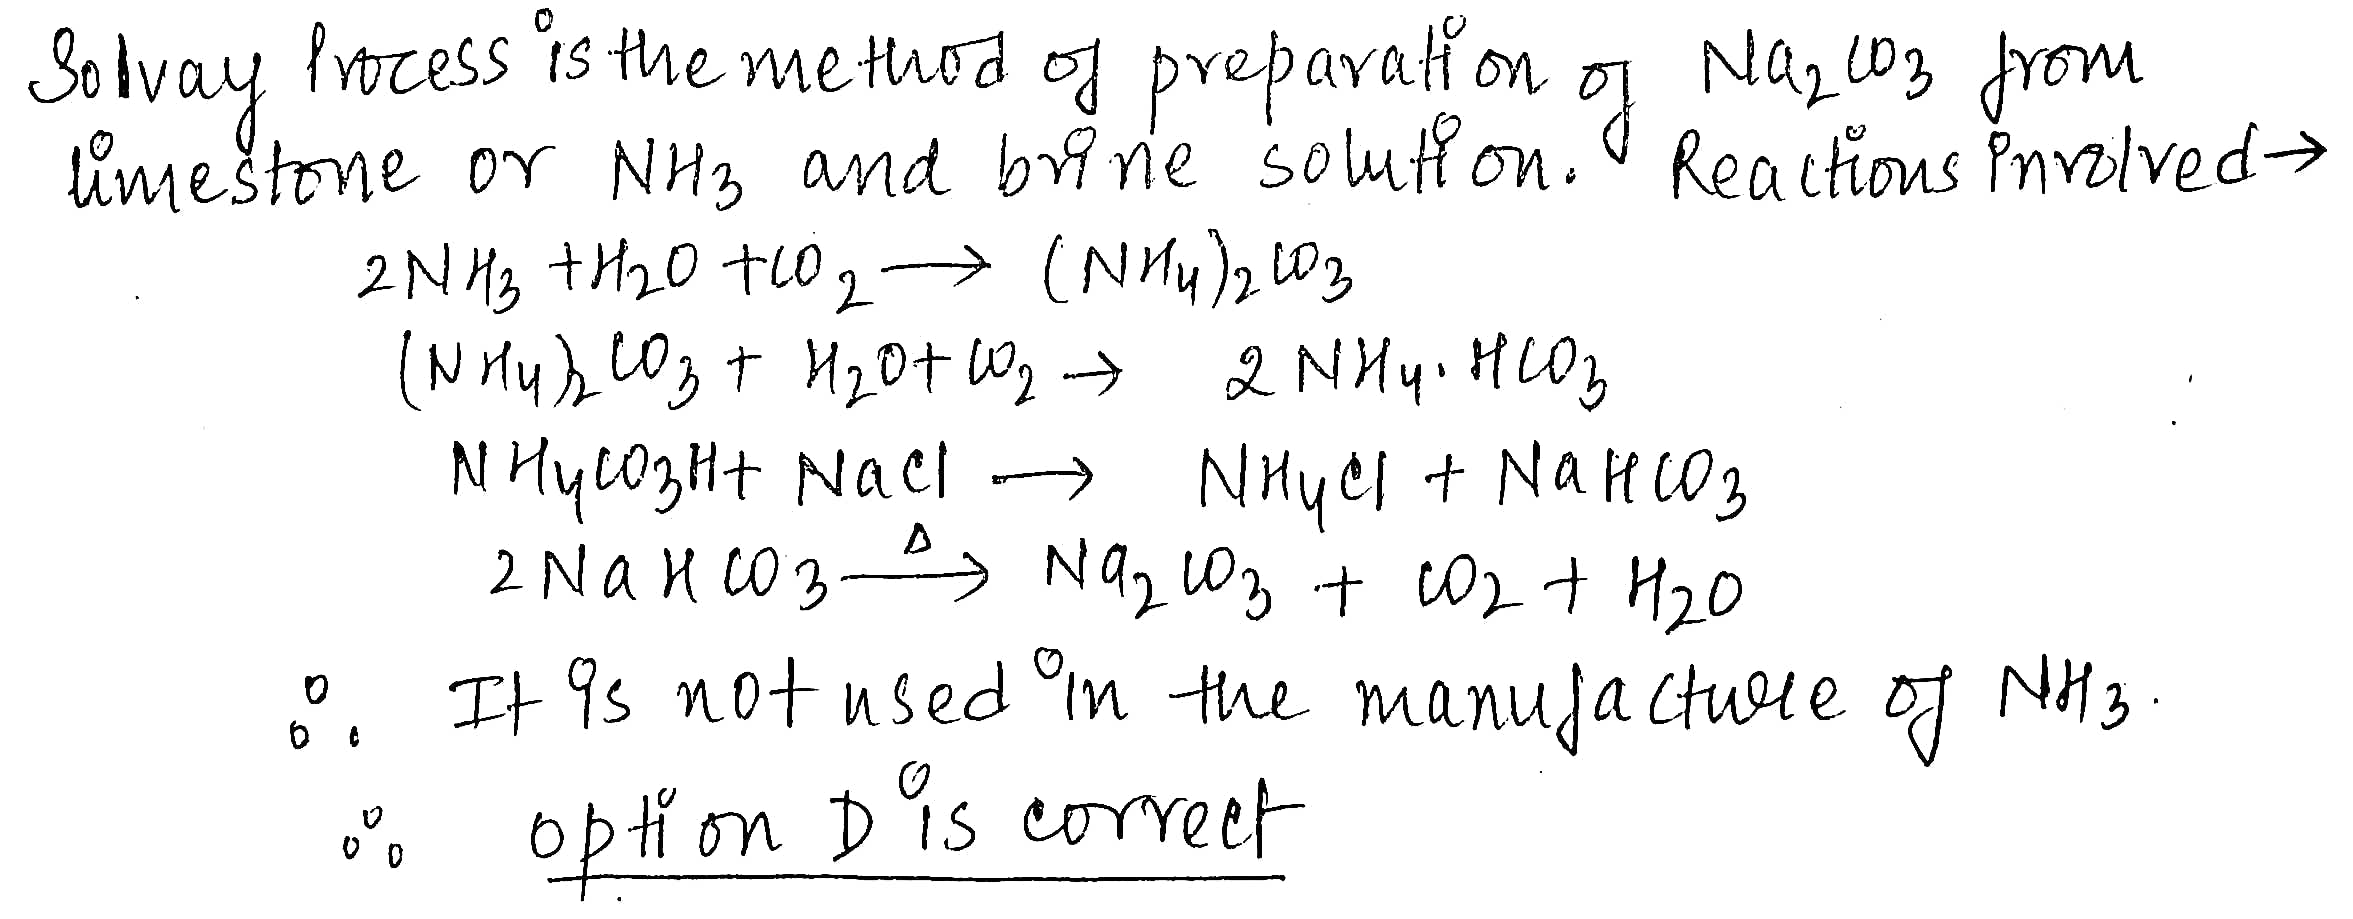 Solvay Process is the method of preparation of Na₂CO₃ from
limestone or NH₃ and brine solution. Reactions involved→
2NH₃ + H₂O + CO₂ ⟶ (NH₄)₂CO₃
(NH₄)₂CO₃ + H₂O + CO₂ → 2NH₄.HCO₃
NH₄CO₃H + NaCl ⟶ NH₄Cl + NaHCO₃
2NaHCO₃ —Δ→ Na₂CO₃ + CO₂ + H₂O
∴ It is not used in the manufacture of NH₃.
∴ option D is correct